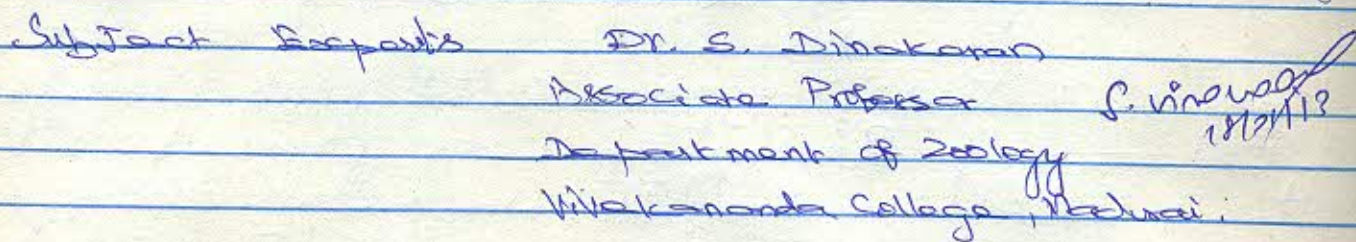 Subject Experts Dr. S. Dinakaran
Associate Professor
Department of Zoology
Vivekananda College, Madurai.